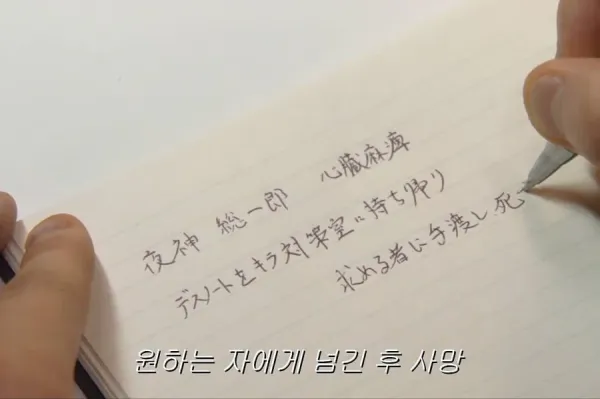 夜神 総一郎 心臓麻痺
デスノートをキラ対策室に持ち帰り
求める者に手渡し死
원하는 자에게 넘긴 후 사망